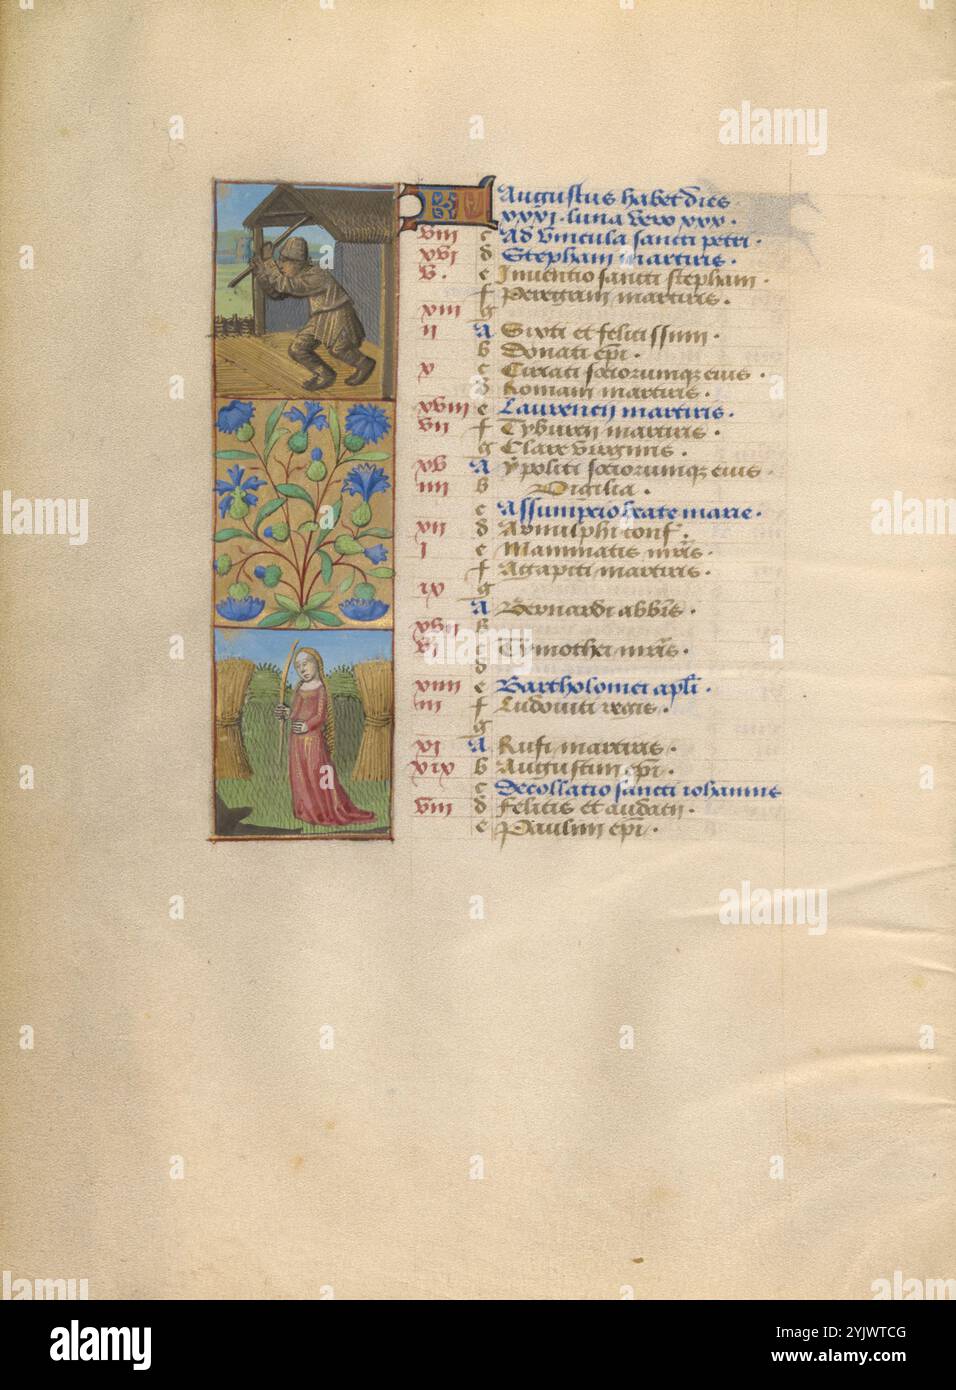 Augustus habet dies
xxxi. luna vero xxx.
viii c Ad vincula sancti petri.
xvi d Stephani martiris.
v. e Inventio sancti stephani.
f Peregrini martiris.
xiii g
ii A Sixti et felicissimi.
b Donati epi.
x c Ciriaci sociorumque eius.
d Romani martiris.
xviii e Laurencii martiris.
vii f Tyburcii martiris.
g Clare virginis.
xv A Ypoliti sociorumque eius.
iiii b Vigilia.
c Assumptio beate marie.
xii d Arnulphi conf.
i e Mammatis mris.
f Agapiti martiris.
ix g
A Bernardi abbis.
xvii b
vi c Tymothei mris.
d
xiiii e Bartholomei apli.
iii f Ludovici regis.
g
xi A Rufi martiris.
xix b Augustini epi.
c Decollatio sancti iohannis
viii d Felicis et audacti.
e Paulini epi.
alamy
alamy
alamy
alamy
alamy
alamy
alamy
Image ID: 2YJWTCG
www.alamy.com